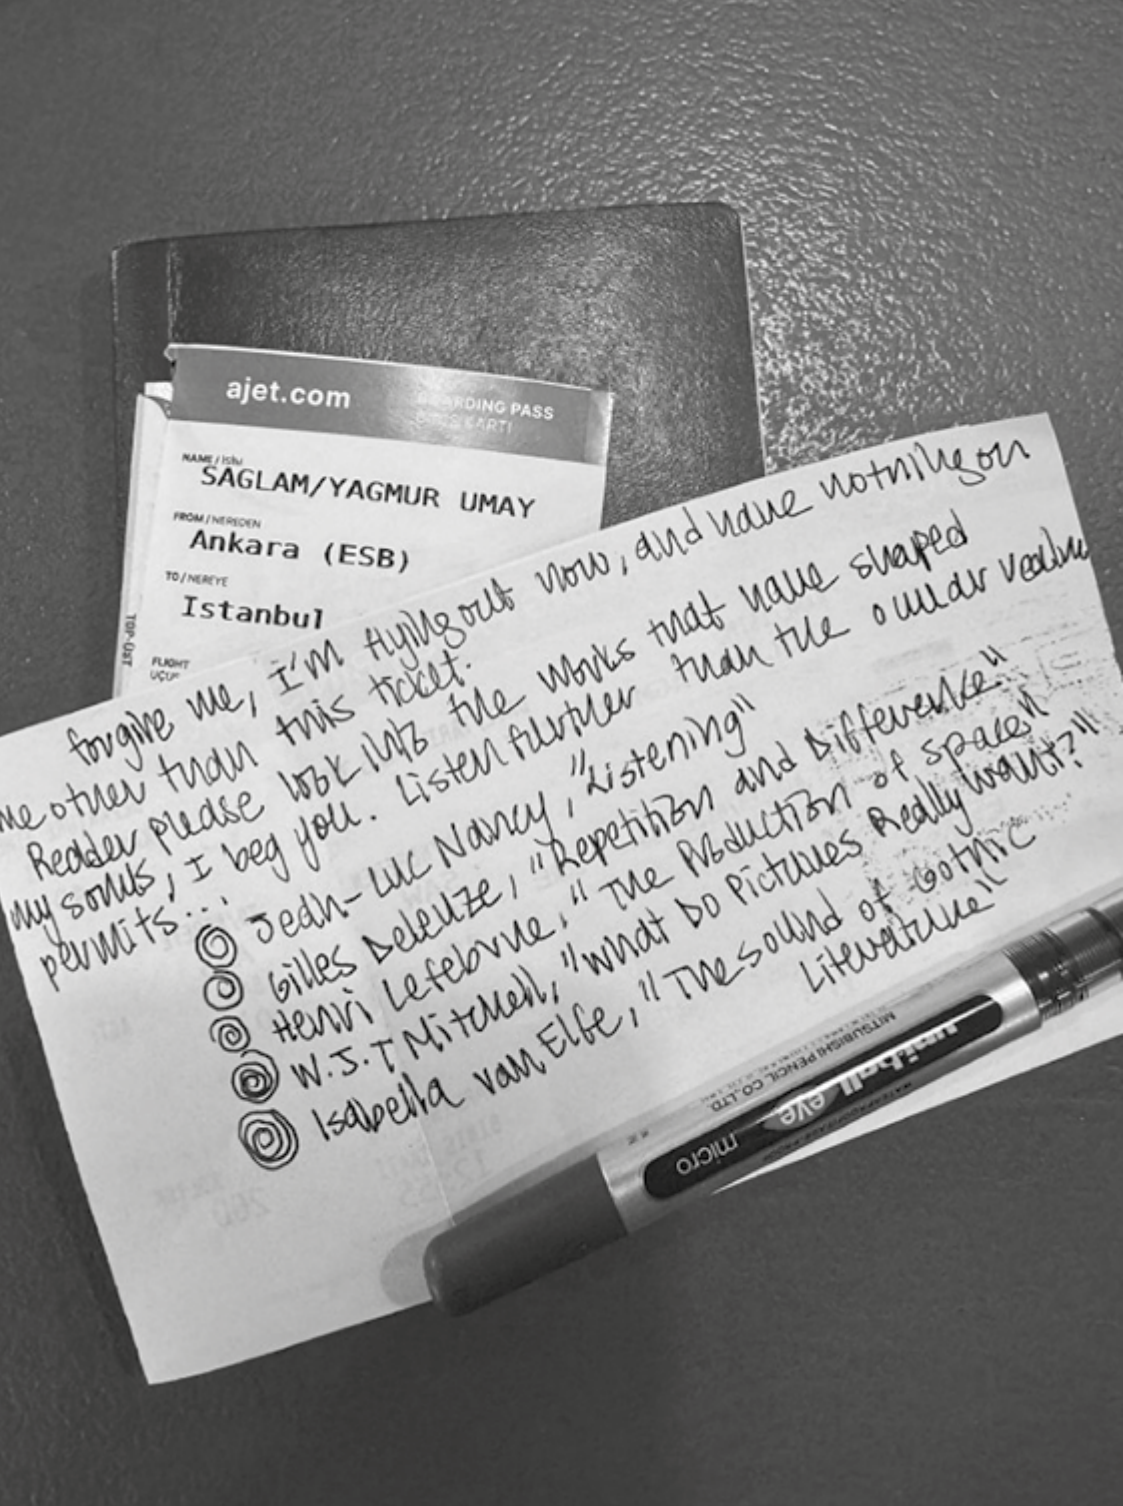 ajet.com
BOARDING PASS
NAME / İSİM
SAGLAM/YAGMUR UMAY
FROM / NEREDEN
Ankara (ESB)
TO / NEREYE
Istanbul
FLIGHT
forgive me, I'm flying out now, and have nothing on
me other than this ticket.
Reader please look into the works that have shaped
my sonus, I beg you. Listen further than the ocular realm
permits...
Jean-Luc Nancy, "Listening"
Gilles Deleuze, "Repetition and Difference."
Henri Lefebvre, "The Production of Spaces"
W.J.T Mitchell, "What Do Pictures Really Want?"
Isabella van Elfe, "The sound of Gothic
Literature"
MITSUBISHI PENCIL CO.,LTD.
uni-ball eye
micro